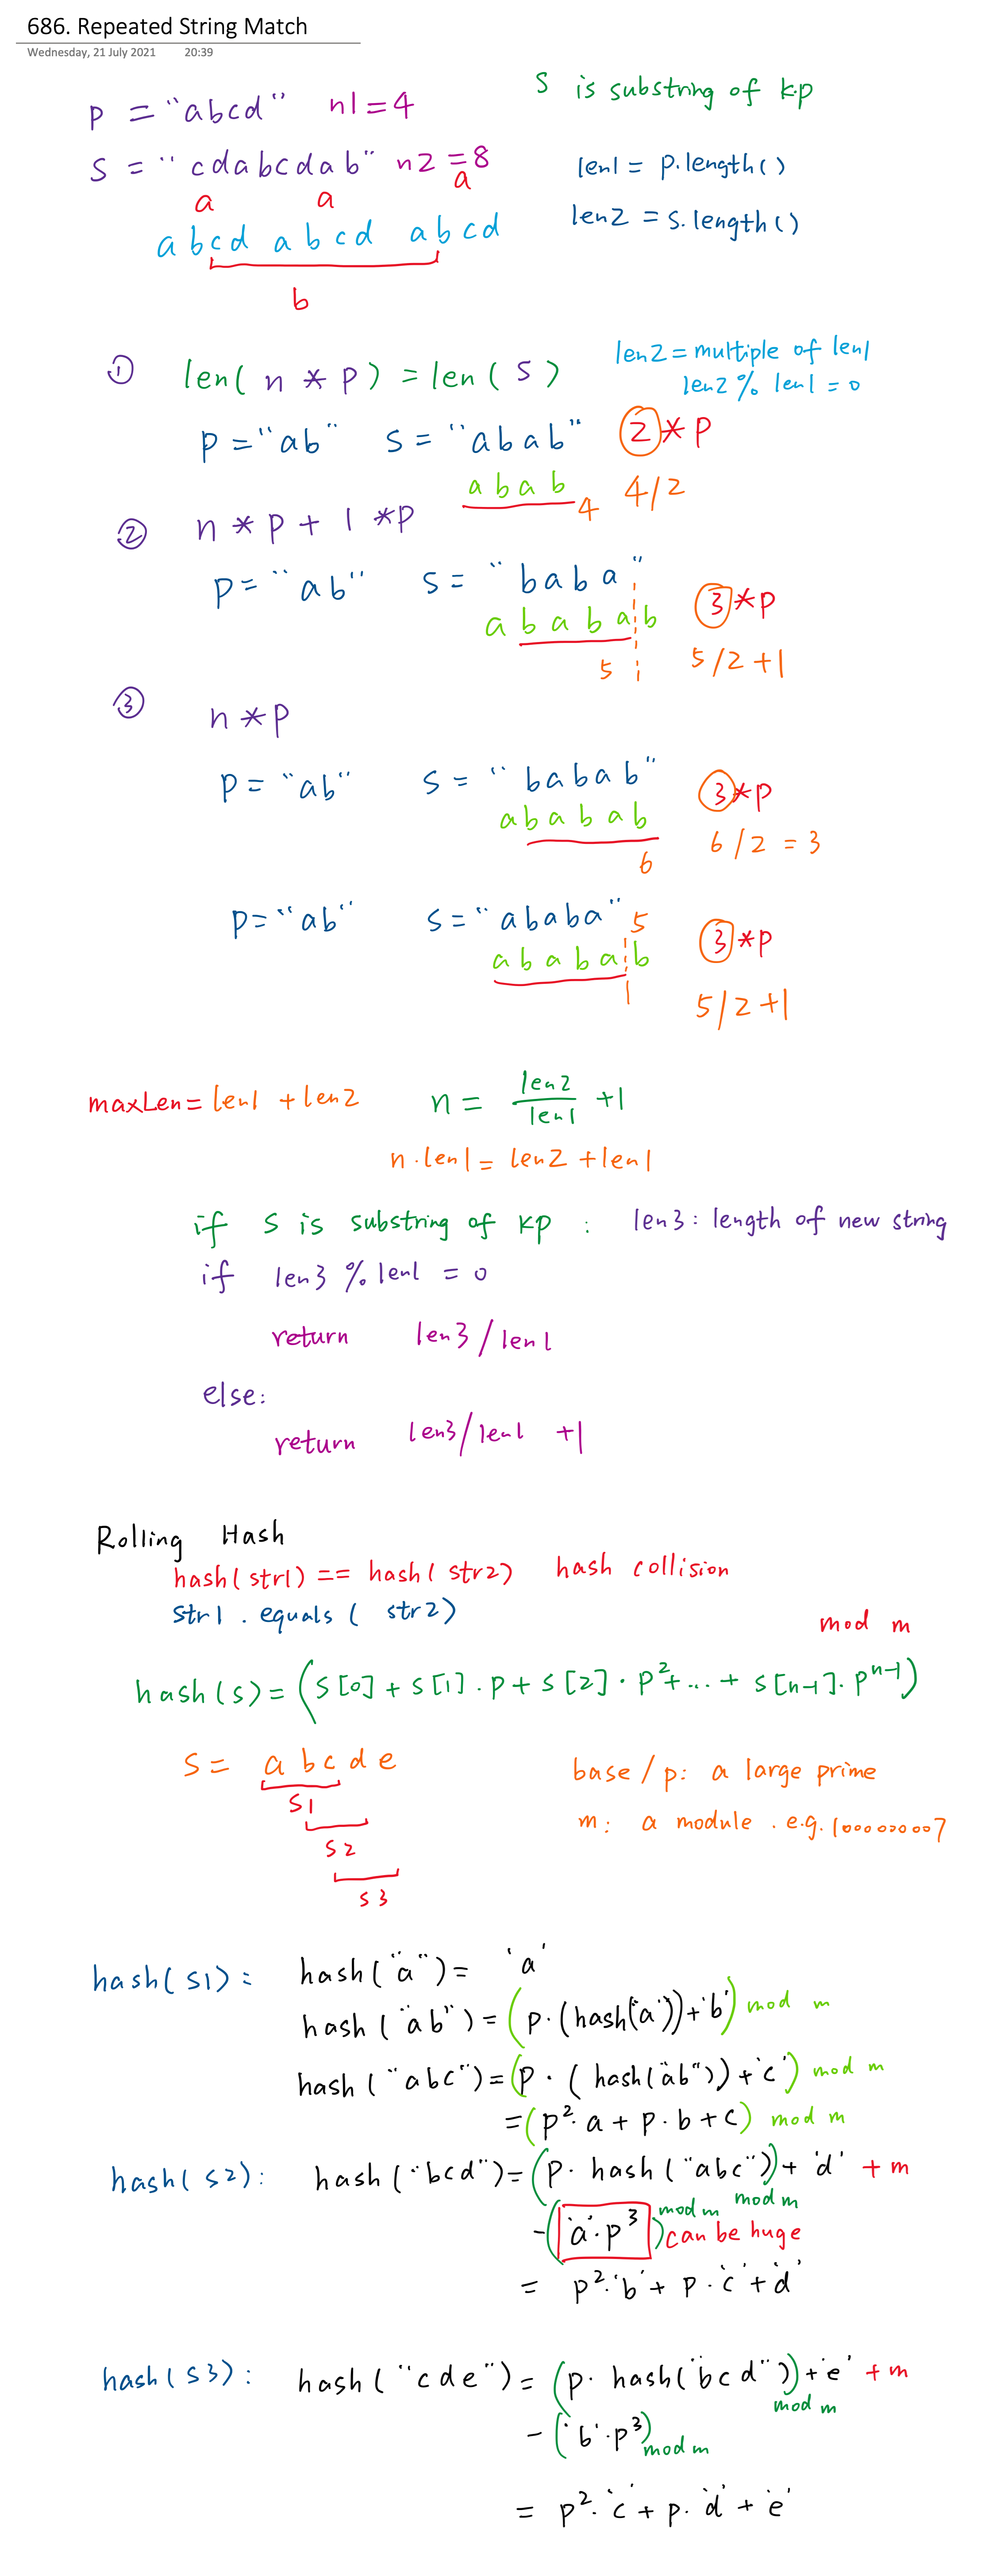 686. Repeated String Match
Wednesday, 21 July 2021 20:39
S is substring of k·p
p = "abcd" n1=4
S = "cdabcdab" n2=8
len1 = p.length()
a a a
len2 = s.length()
abcd abcd abcd
b
① len(n * p) = len(s)
len2 = multiple of len1
len2 % len1 = 0
p="ab" s="abab" ②*p
abab 4 4/2
② n*p + 1*p
p="ab" s="baba"
ababab ③*p
5 5/2+1
③ n*p
p="ab" s="babab" ③*p
ababab
6 6/2=3
p="ab" s="ababa" 5 ③*p
ababab
5/2+1
maxLen = len1 + len2 n = len2/len1 +1
n·len1 = len2 + len1
if s is substring of kp : len3: length of new string
if len3 % len1 = 0
return len3/len1
else:
return len3/len1 +1
Rolling Hash
hash(str1) == hash(str2) hash collision
str1.equals(str2)
mod m
hash(s) = (s[0] + s[1]·p + s[2]·p² + ... + s[n-1]·pⁿ⁻¹)
s = abcde
base/p: a large prime
s1
m: a module. e.g. 1000000007
s2
s3
hash(s1): hash("a") = 'a'
hash("ab") = (p·(hash('a'))+'b') mod m
hash("abc") = (p·(hash("ab"))+'c') mod m
= (p²·a + p·b + c) mod m
hash(s2): hash("bcd") = (p·hash("abc")) + 'd' + m
mod m
-('a'·p³) mod m can be huge
= p²·'b' + p·'c' + 'd'
hash(s3): hash("cde") = (p·hash("bcd")) + 'e' + m
mod m
- ('b'·p³) mod m
= p²·'c' + p·'d' + 'e'